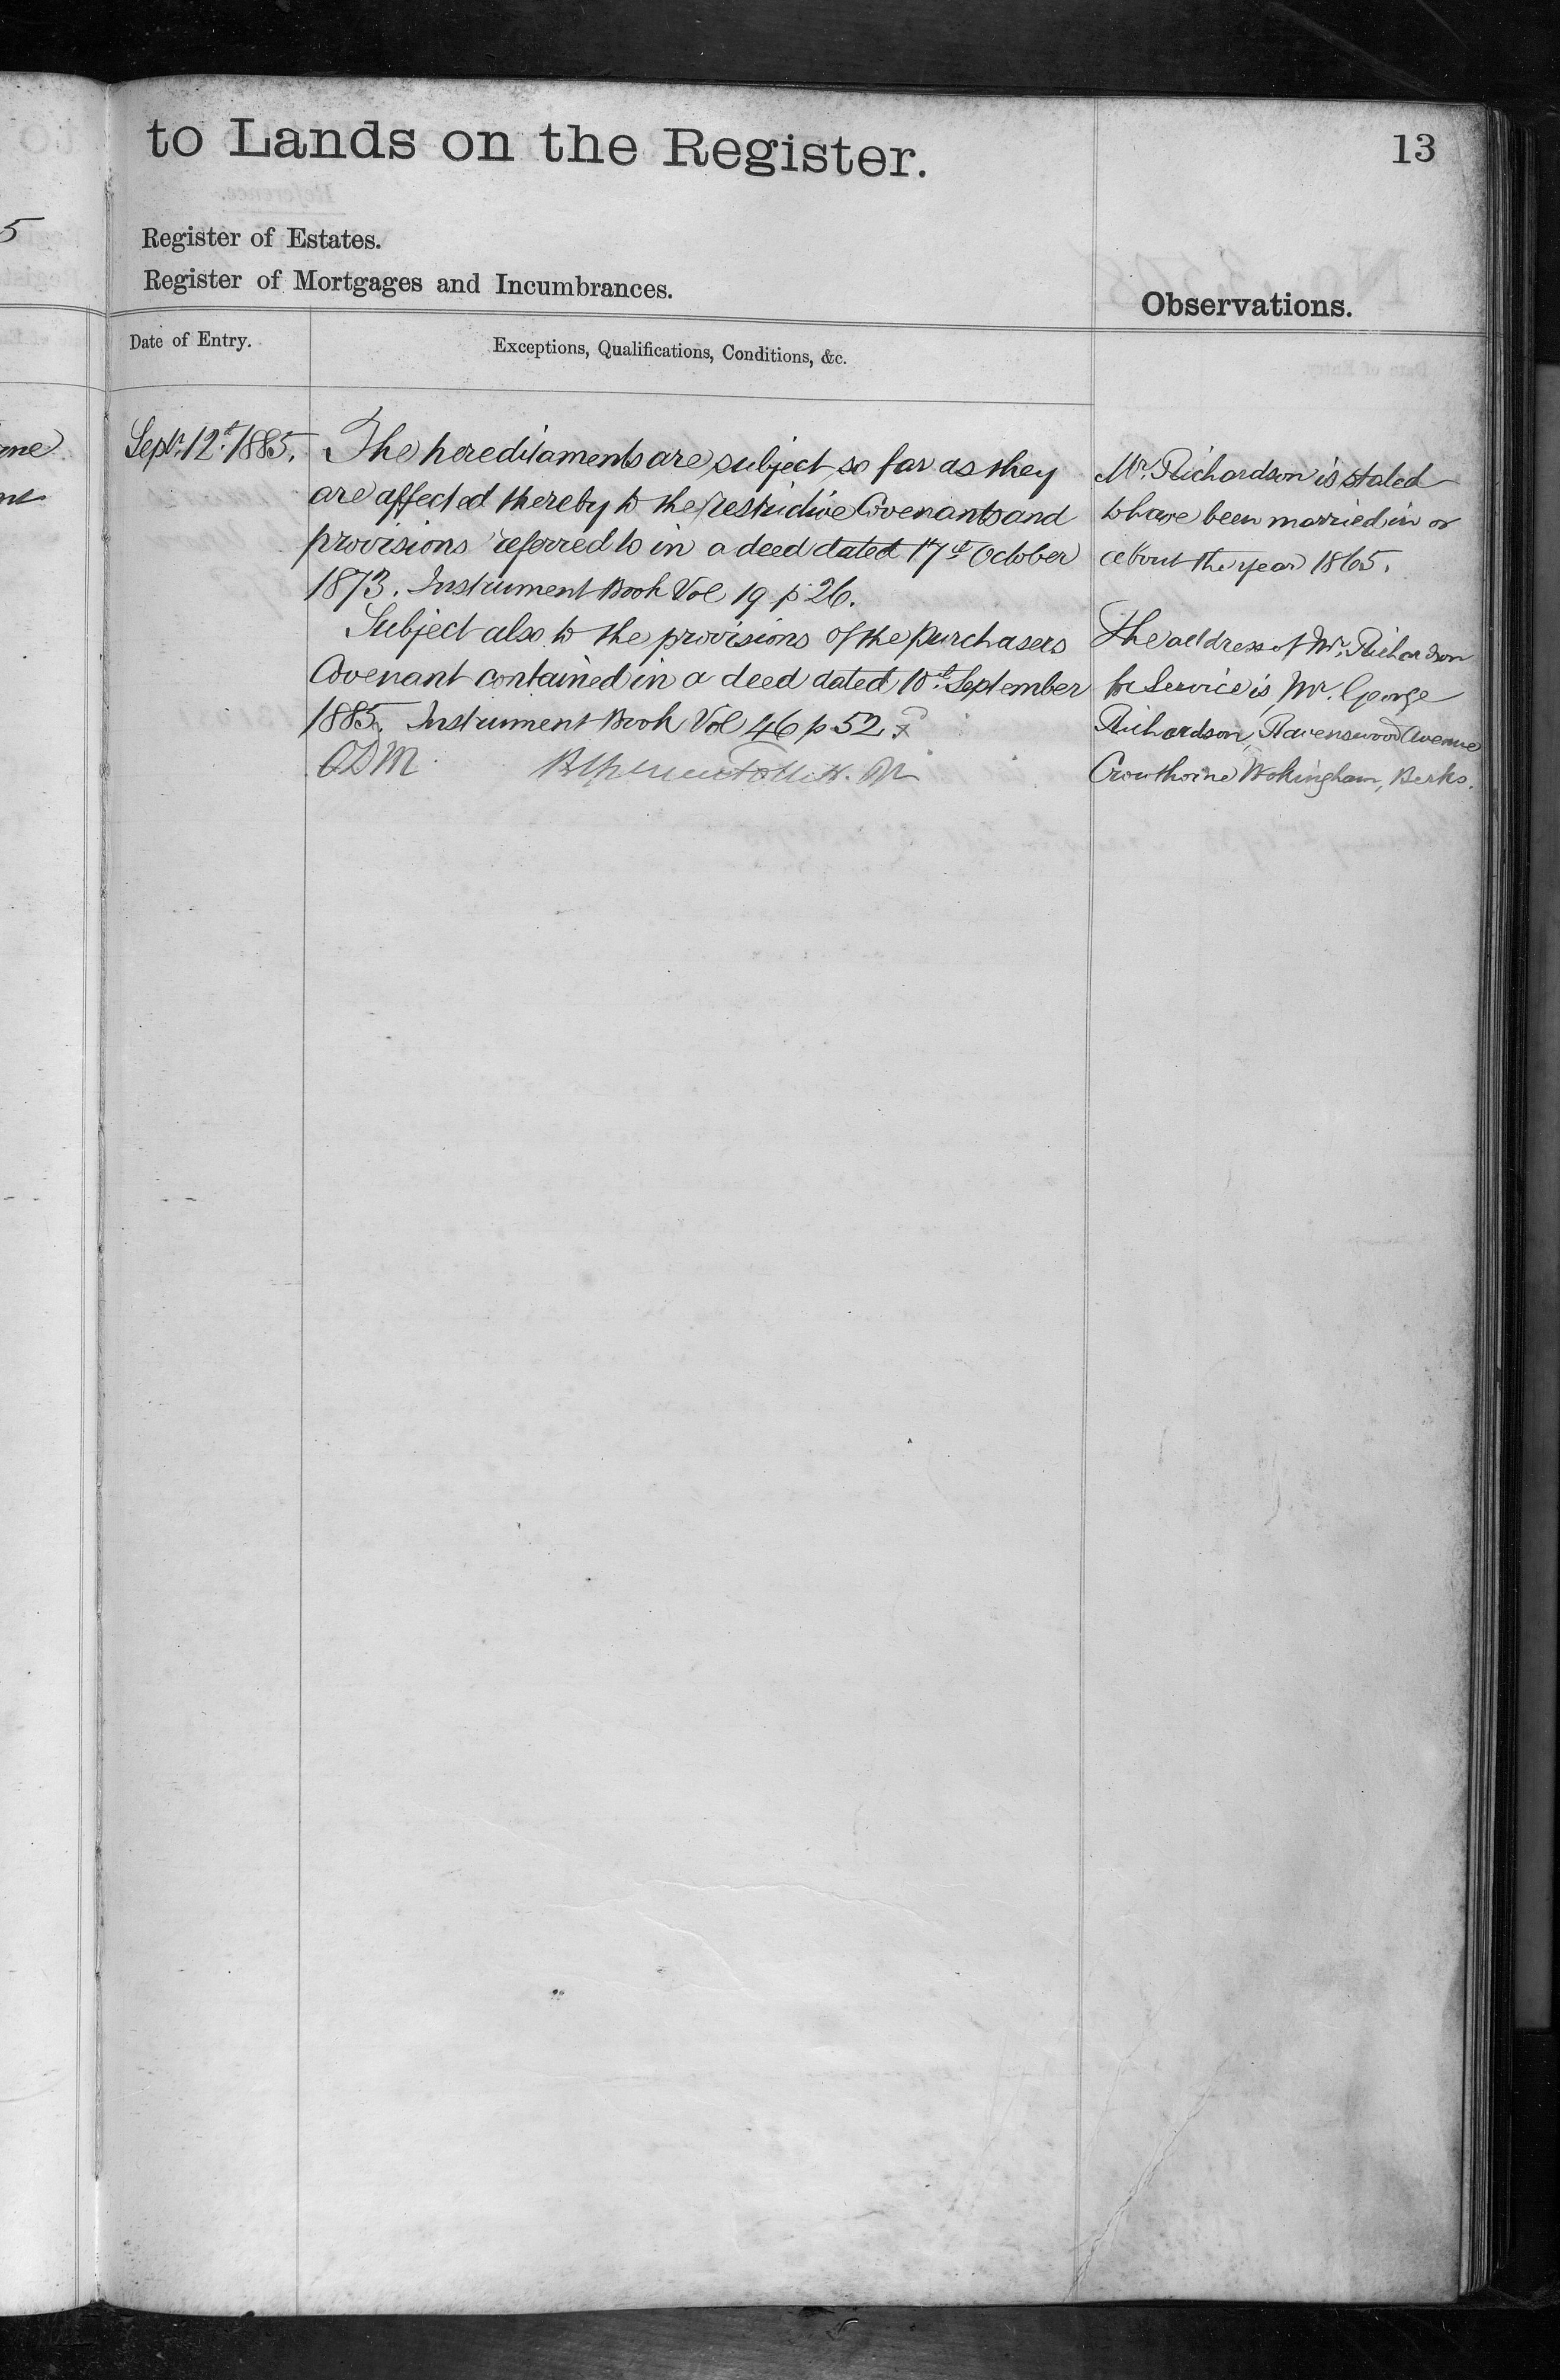 to Lands on the Register.
13
Register of Estates.
Register of Mortgages and Incumbrances.
Observations.
Date of Entry.
Exceptions, Qualifications, Conditions, &c.
5
Septr. 12th 1885.
The hereditaments are subject so far as they
are affected thereby to the restrictive Covenants and
provisions referred to in a deed dated 17th October
1873. Instrument Book Vol 19 p 26.
Subject also to the provisions of the purchasers
Covenant contained in a deed dated 10th September
1885. Instrument Book Vol 46 p 52.
ODM
Mr. Richardson is stated
to have been married in or
about the year 1865.
The address of Mr. Richardson
for Service is, Mr. George
Richardson, Ravenswood Avenue
Crowthorne Wokingham, Berks.